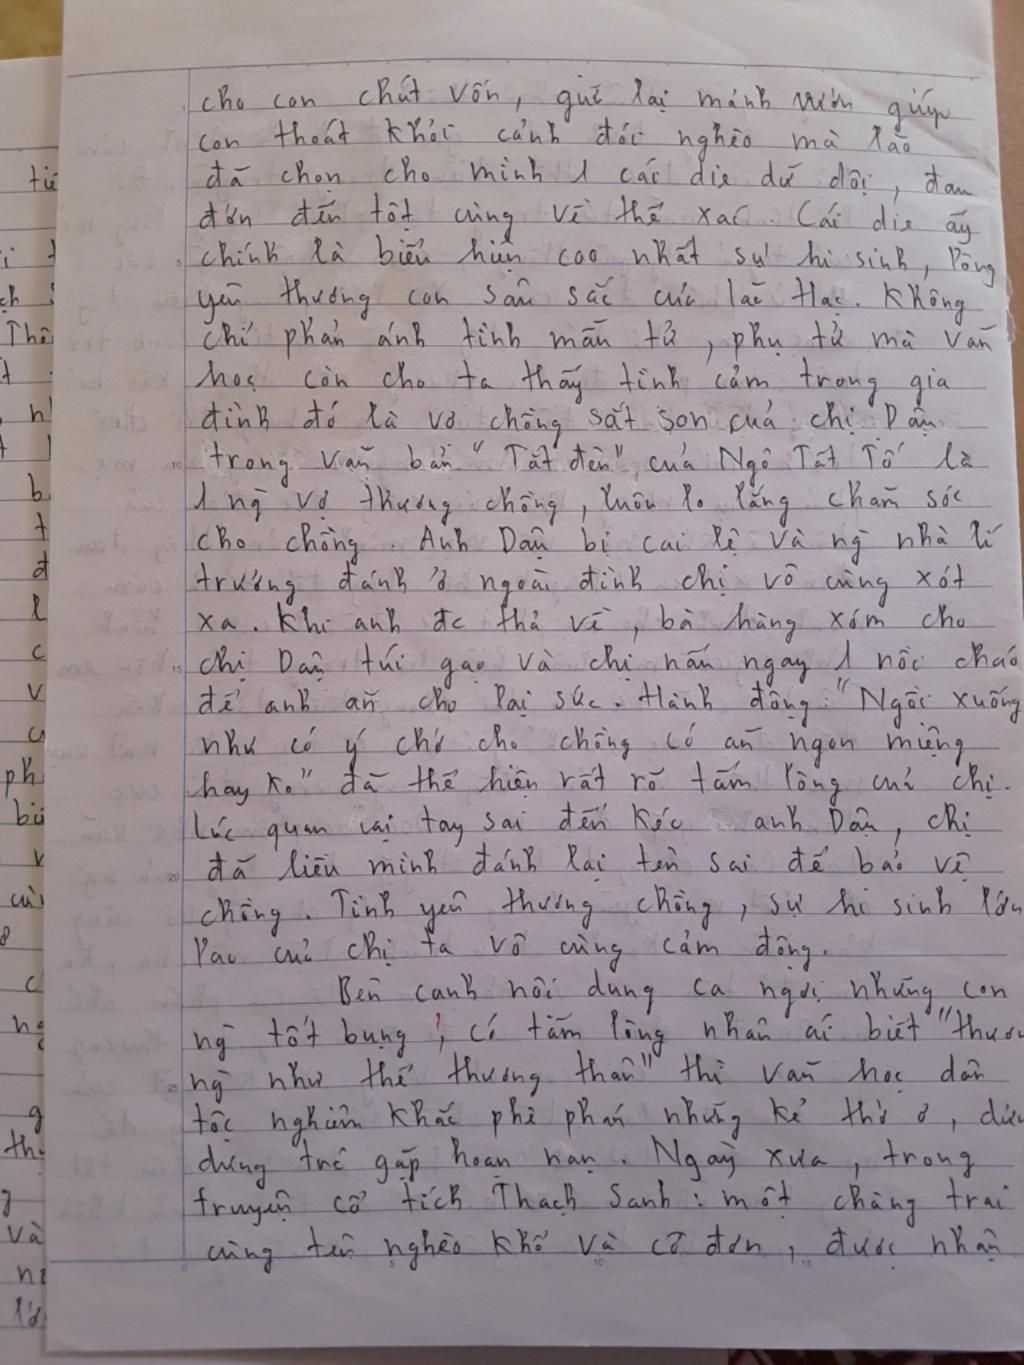 cho con chút vốn, giữ lại mảnh vườn giúp
con thoát khỏi cảnh đói nghèo mà lão
đã chọn cho mình 1 cái die dữ dội, đau
đớn đến tột cùng về thể xác. Cái die ấy
chính là biểu hiện cao nhất sự hi sinh, lòng
yêu thương con sâu sắc của lão Hạc. Không
chỉ phản ánh tình mẫu tử, phụ tử mà văn
học còn cho ta thấy tình cảm trong gia
đình đó là vợ chồng sắt son của chị Dậu
trong văn bản "Tắt đèn" của Ngô Tất Tố là
1 ng` vợ thương chồng, luôn lo lắng chăm sóc
cho chồng. Anh Dậu bị cai lệ và ng` nhà lí
trưởng đánh ở ngoài đình chị vô cùng xót
xa. Khi anh đc thả về, bà hàng xóm cho
chị Dậu túi gạo và chị nấu ngay 1 nồi cháo
để anh ăn cho lại sức. Hành động: "Ngồi xuống
như có ý chờ cho chồng có ăn ngon miệng
hay ko" đã thể hiện rất rõ tấm lòng của chị.
Lúc quan lại tay sai đến anh Dậu, chị
đã liều mình đánh lại tên sai để bảo vệ
chồng. Tình yêu thương chồng, sự hi sinh lớn
lao của chị ta vô cùng cảm động.
Bên cạnh nội dung ca ngợi những con
ng` tốt bụng, có tấm lòng nhân ái biết "thương
ng` như thể thương thân" thì văn học dân
tộc nghiêm khắc phê phán những kẻ thờ ơ, dửng
dưng trc gặp hoạn nạn. Ngày xưa, trong
truyện cổ tích Thạch Sanh: một chàng trai
cùng tên nghèo khổ và cô đơn, được nhận